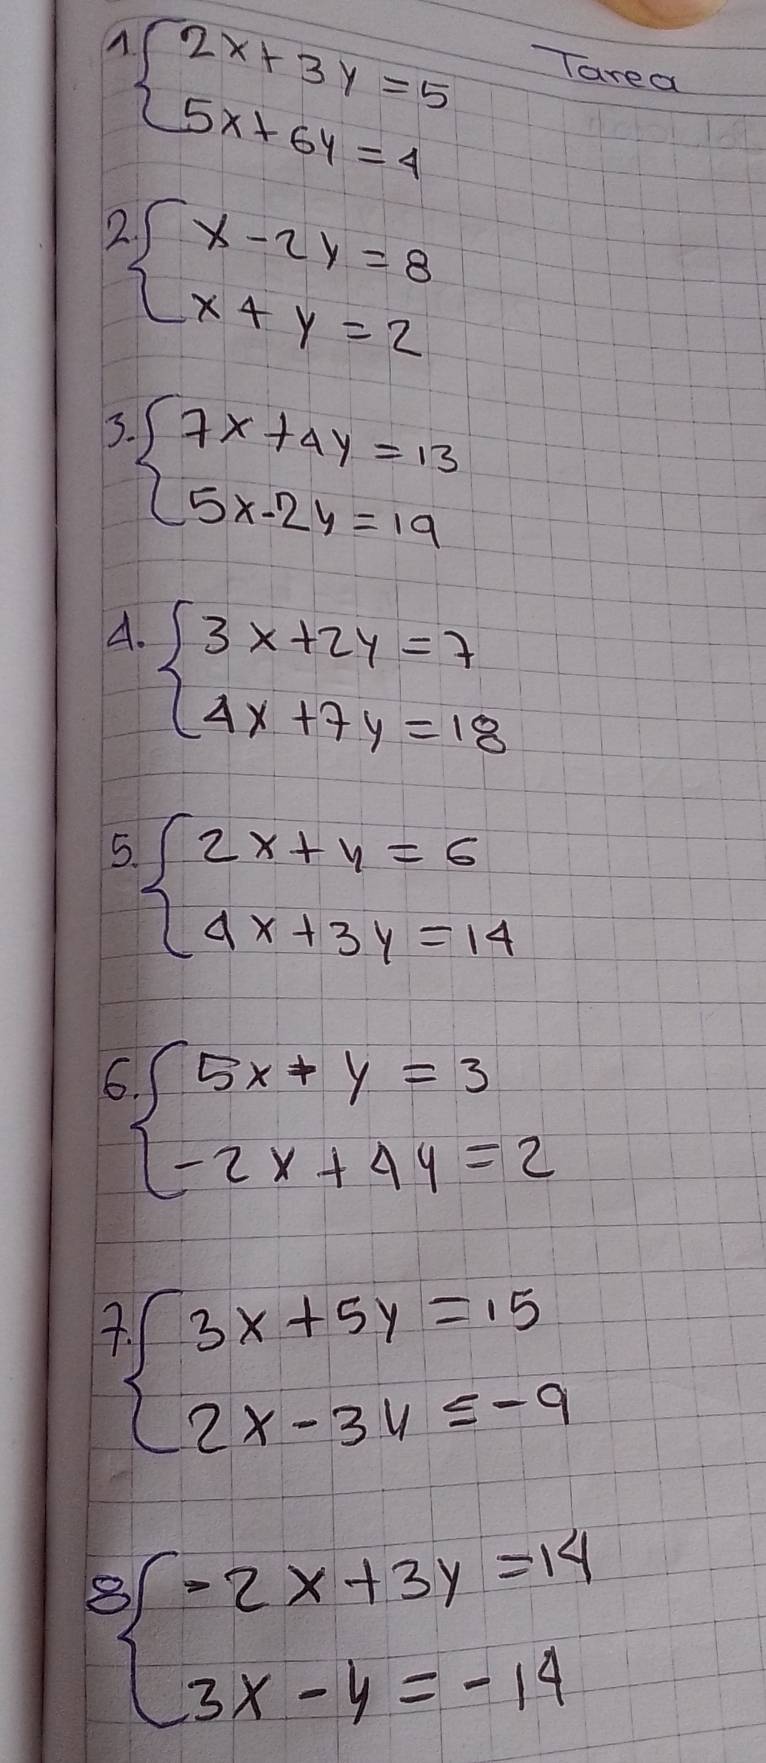 Tarea
1. 2x+3y=5
5x+6y=4
2. x-2y=8
x+y=2
3. 7x+4y=13
5x-2y=19
4. 3x+2y=7
4x+7y=18
5. 2x+y=6
4x+3y=14
6. 5x+y=3
-2x+4y=2
7. 3x+5y=15
2x-3y=-9
8 -2x+3y=14
3x-y=-14